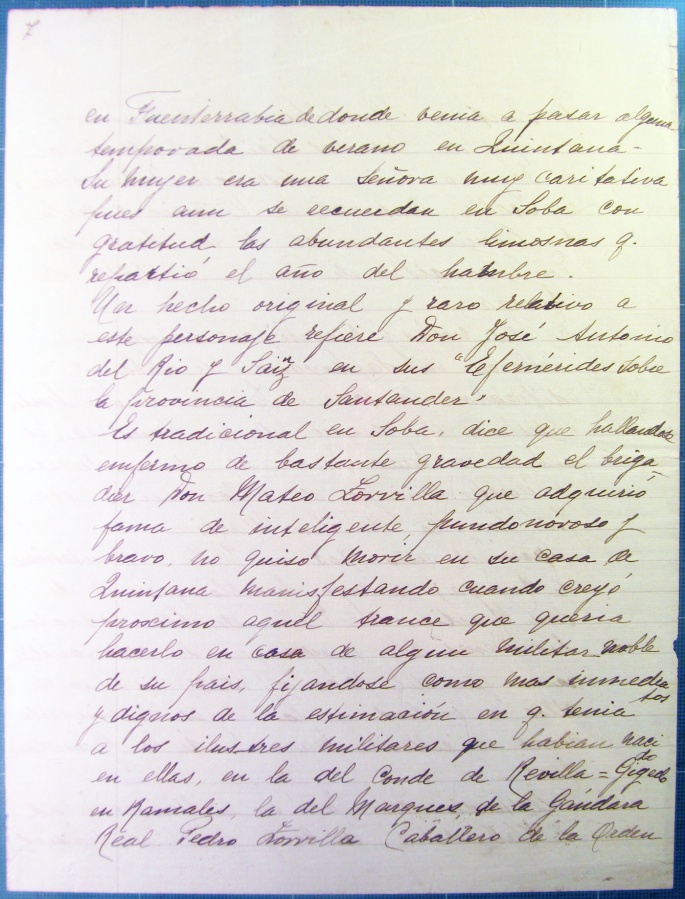 7
en Fuenterrabia de donde venia a pasar alguna
temporada de verano en Quintana -
Su mujer era una señora muy caritativa
pues aun se recuerdan en Soba con
gratitud las abundantes limosnas q.
repartió el año del hambre.
Un hecho original y raro relativo a
este personaje refiere Don José Antonio
del Rio y Sainz en sus "Efemérides sobre
la provincia de Santander"
Es tradicional en Soba, dice que hallandose
enfermo de bastante gravedad el briga-
dier Don Mateo Zorrilla que adquirió
fama de inteligente, pundonoroso y
bravo, no quiso morir en su casa de
Quintana manifestando cuando creyó
proximo aquel trance que queria
hacerlo en casa de algun militar noble
de su pais, fijandose como mas inmedia
tos
y dignos de la estimación en q. tenia
a los ilustres militares que habian naci
do
en ellas, en la del Conde de Revilla = Gigedo
en Ramales, la del Marques de la Gándara
Real Pedro Zorrilla Caballero de la Orden